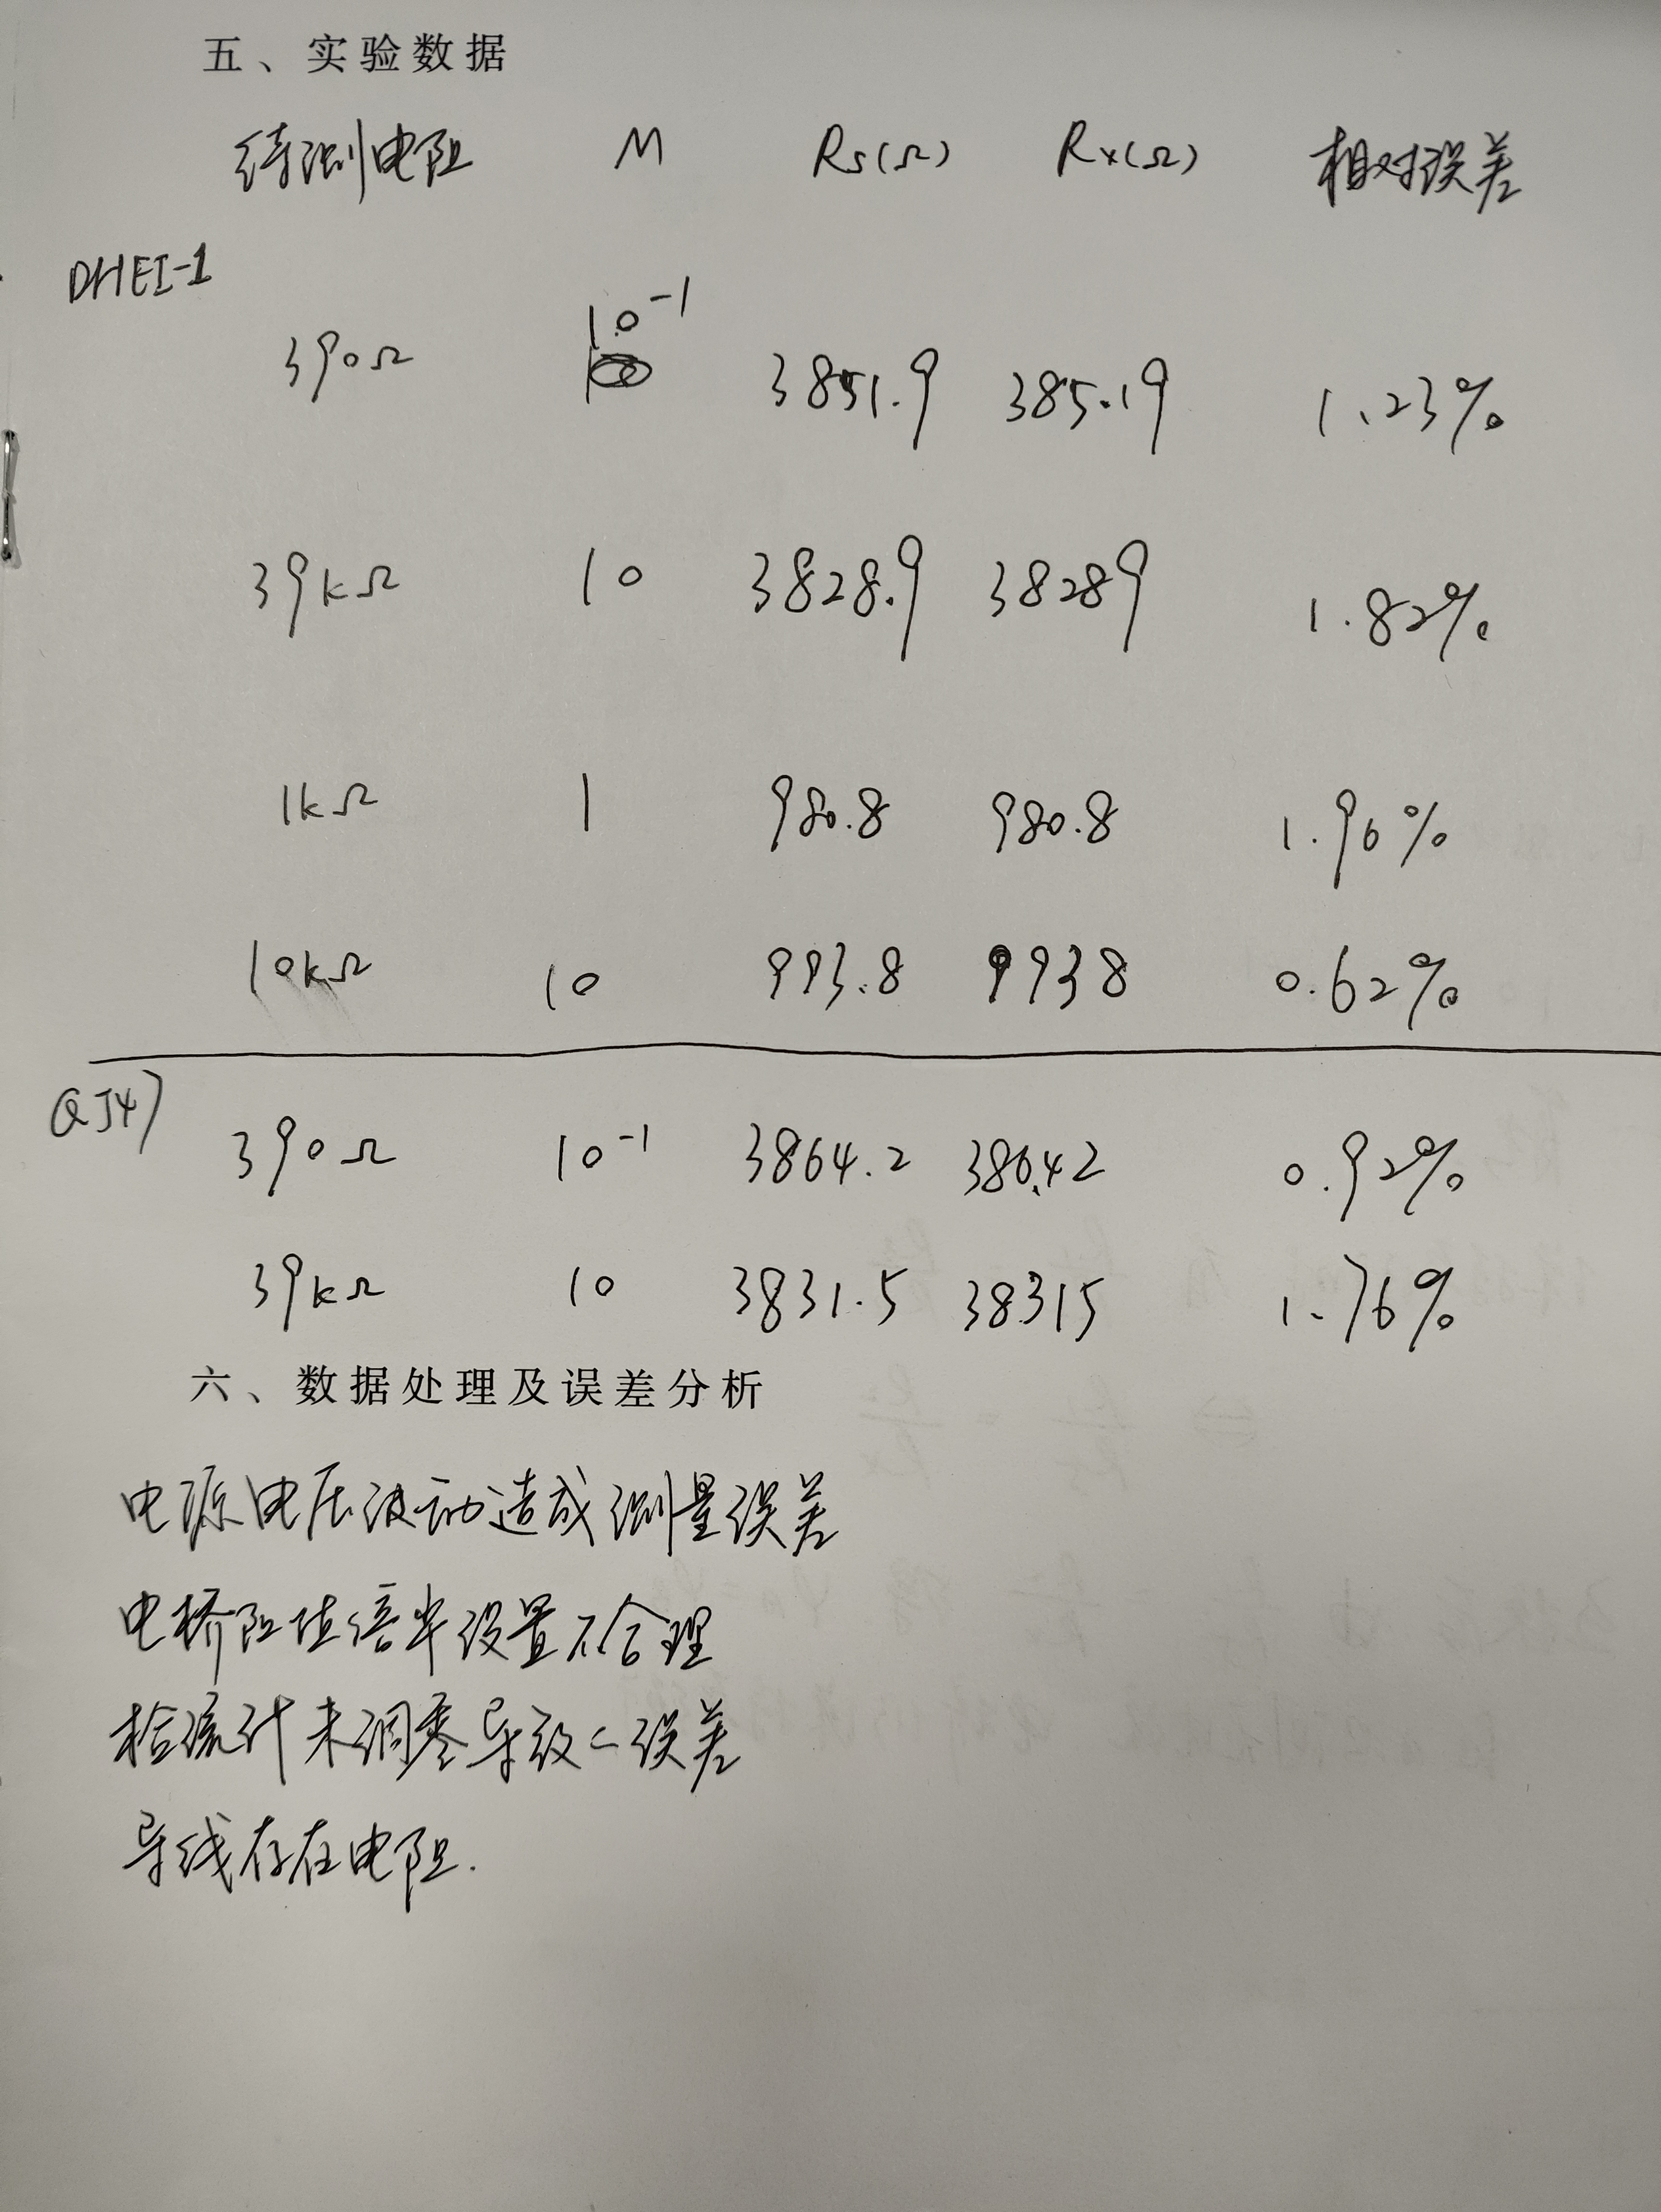 五、实验数据
待测电阻 M Rs(Ω) Rx(Ω) 相对误差
DHEI-1
390Ω 10⁻¹ 3851.9 385.19 1.23%
39kΩ 10 3828.9 38289 1.82%
1kΩ 1 980.8 980.8 1.96%
10kΩ 10 993.8 9938 0.62%
QJ47
390Ω 10⁻¹ 3864.2 386.42 0.92%
39kΩ 10 3831.5 38315 1.76%
六、数据处理及误差分析
电源电压波动造成测量误差
电桥阻值倍率设置不合理
检流计未调零导致误差
导线存在电阻.